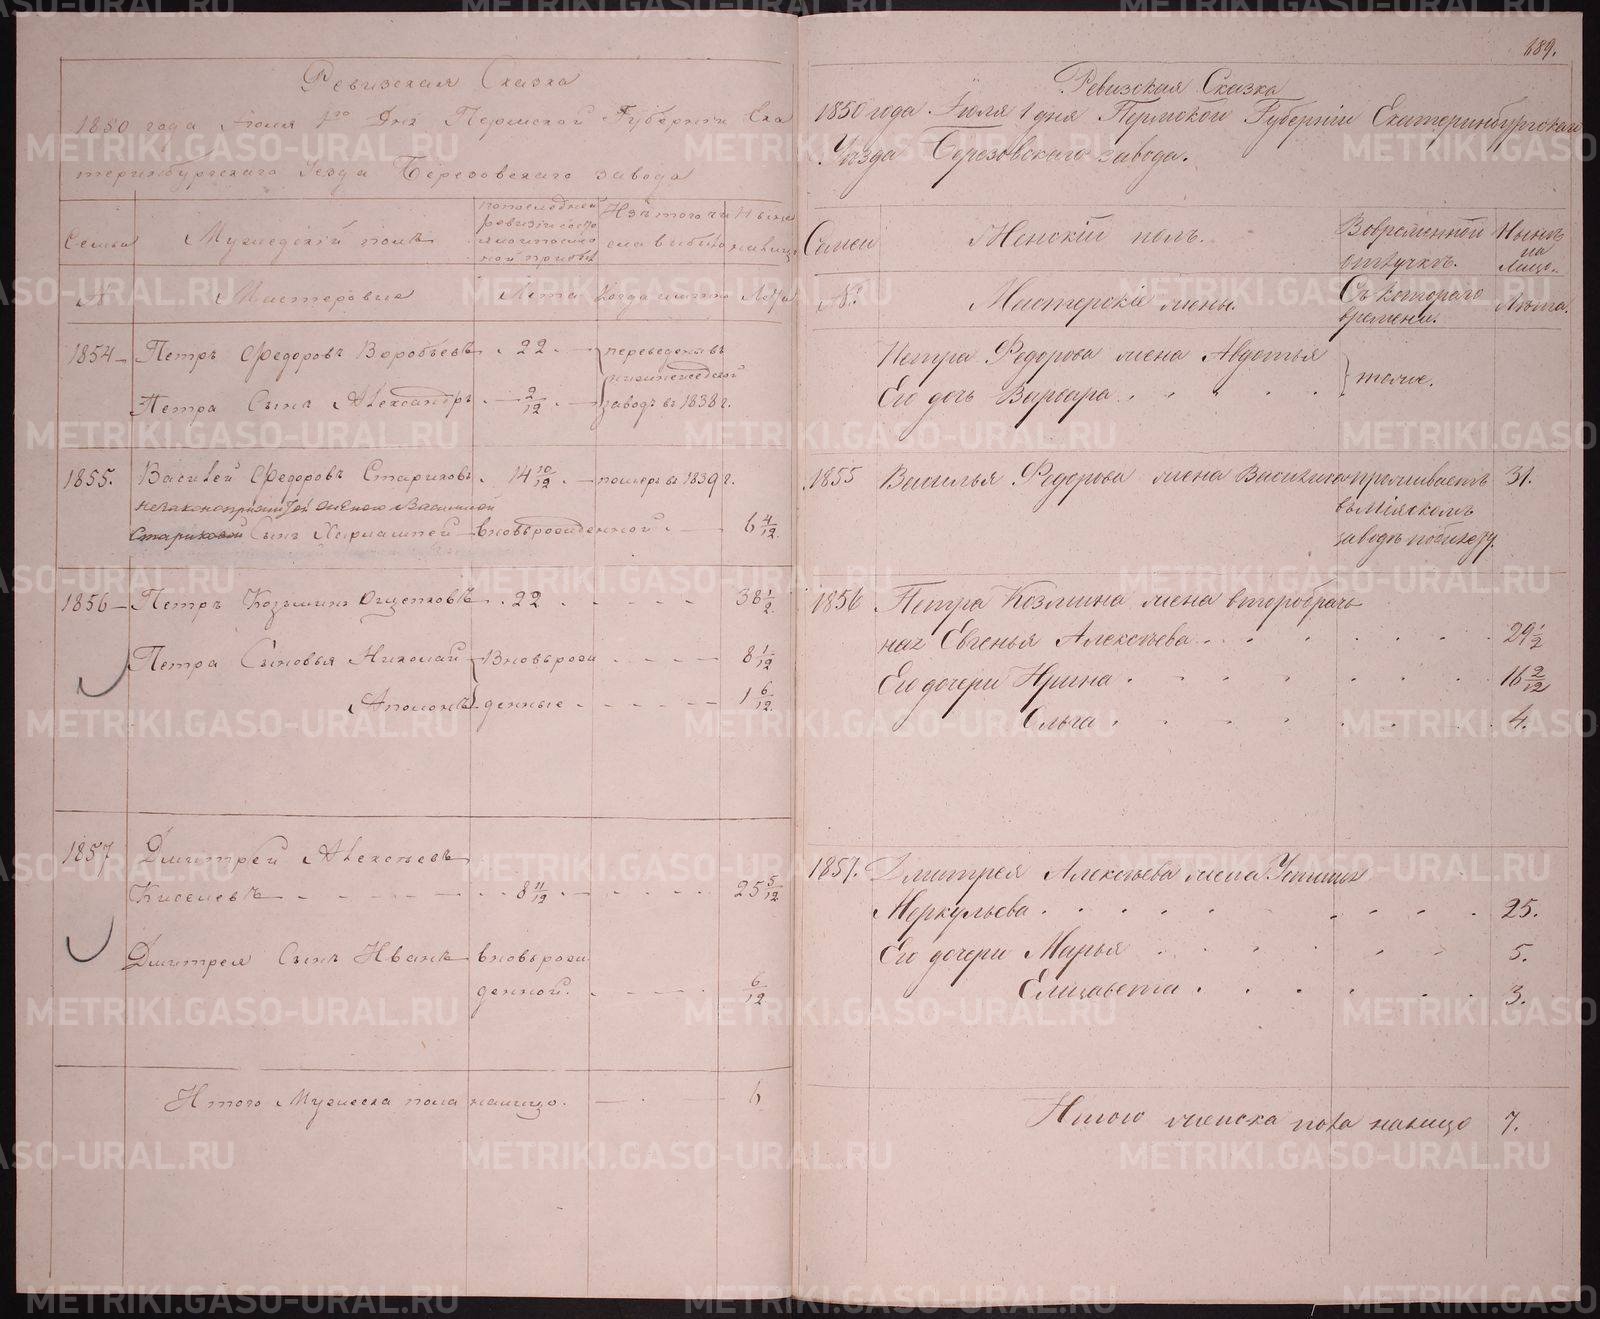 Ревизская Сказка
1850 года Июля 1го Дня Пермской Губернiи Ека
теринбургскаго Уезда Березовскаго завода
Семьи
Мужескiй полъ
по последней ревизiи состо
Изъ того чи
сла выбыло
Ныне
налицо
№
Мастеровые
Лета
Когда именно
Лета
1854 – Петръ Федоровъ Воробьевъ . 22 . переведенъ въ
Петра Сынъ Александръ . 2/12 . заводъ въ 1838 г.
1855. Василей Федоровъ Стариковъ . 14 10/12 . померъ въ 1839 г.
Стариковой Сынъ Харлампей – вновьрожденной . – 6 4/12
1856 – Петръ Козьминъ Ощепковъ . . 22 . 38 1/2
Петра Сыновья Николай Вновьрож 8 1/12
Аполонъ денные 1 6/12
1857 Дмитрей Алексеевъ
Киселевъ 8 11/12 25 5/12
Дмитрея Сынъ Иванъ вновьрож
денной. 6/12
Итого Мужеска пола налицо. 6
689.
Ревизская Сказка
1850 года Июля 1 дня Пермской Губернiи Екатеринбургскаго
Уѣзда Березовскаго завода.
Семьи
Женскiй полъ.
Вовременной
отлучкѣ.
Нынѣ
на
Лицо.
№.
Мастерскiе жены.
Съ котораго
времени.
Лѣта.
Петра Федорова жена Авдотья
Его дочь Варвара
тоже.
1855 Василья Федорова жена Василиса проживаетъ 31.
въ Мiяскомъ
заводѣ по билету.
1856 Петра Козмина жена второбрач
ная Евгенья Алексѣева 29 1/2
Его дочери Ирина 16 2/12
Ольга 4.
1857. Дмитрея Алексѣева жена Устинья
Меркульева 25.
Его дочери Марья 5.
Елизавета 3.
Итого женска пола налицо 7.
METRIKI.GASO-URAL.RU